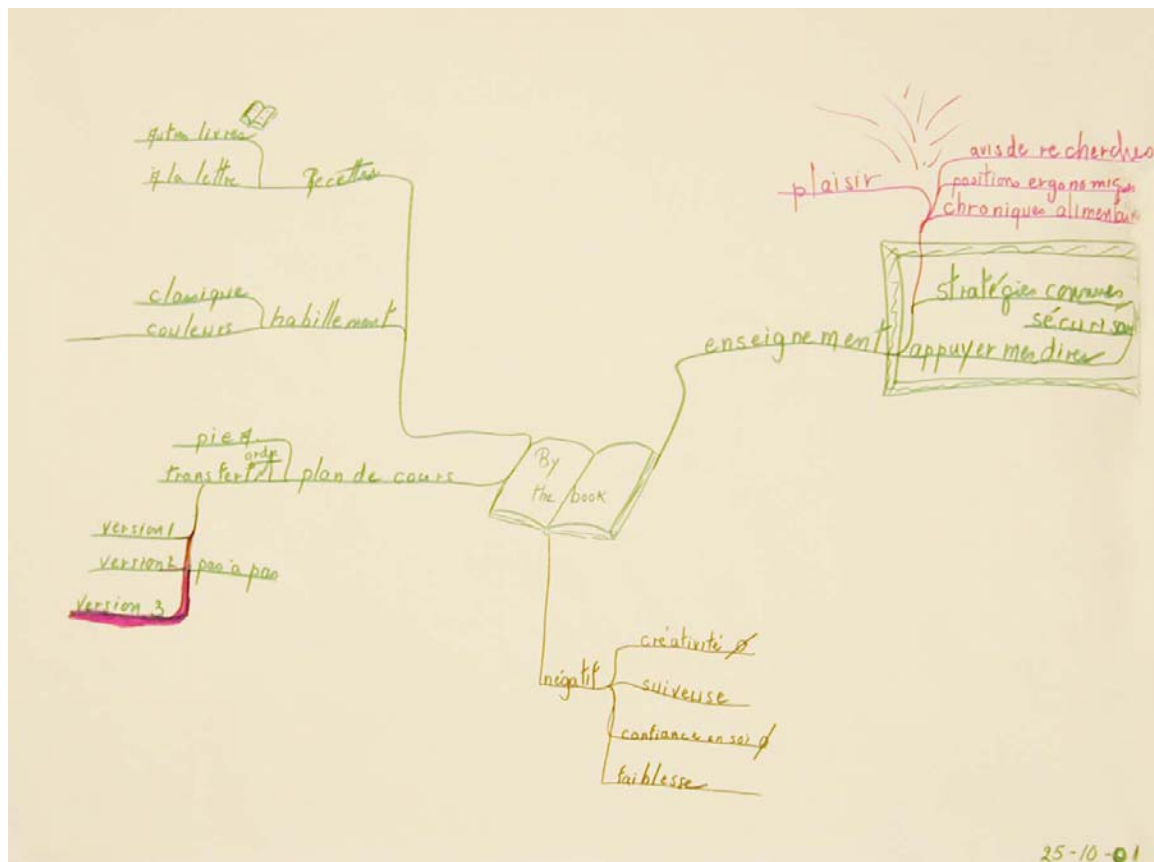 By
the book
recettes
livres
à la lettre
habillement
classique
couleurs
plan de cours
transfert
ordre
version 1
version 2 pas à pas
version 3
négatif
créativité ∅
suiveuse
confiance en soi ∅
faiblesse
enseignement
plaisir
avis de recherches
positions
chroniques
stratégies connues
appuyer mes dires
25-10-01